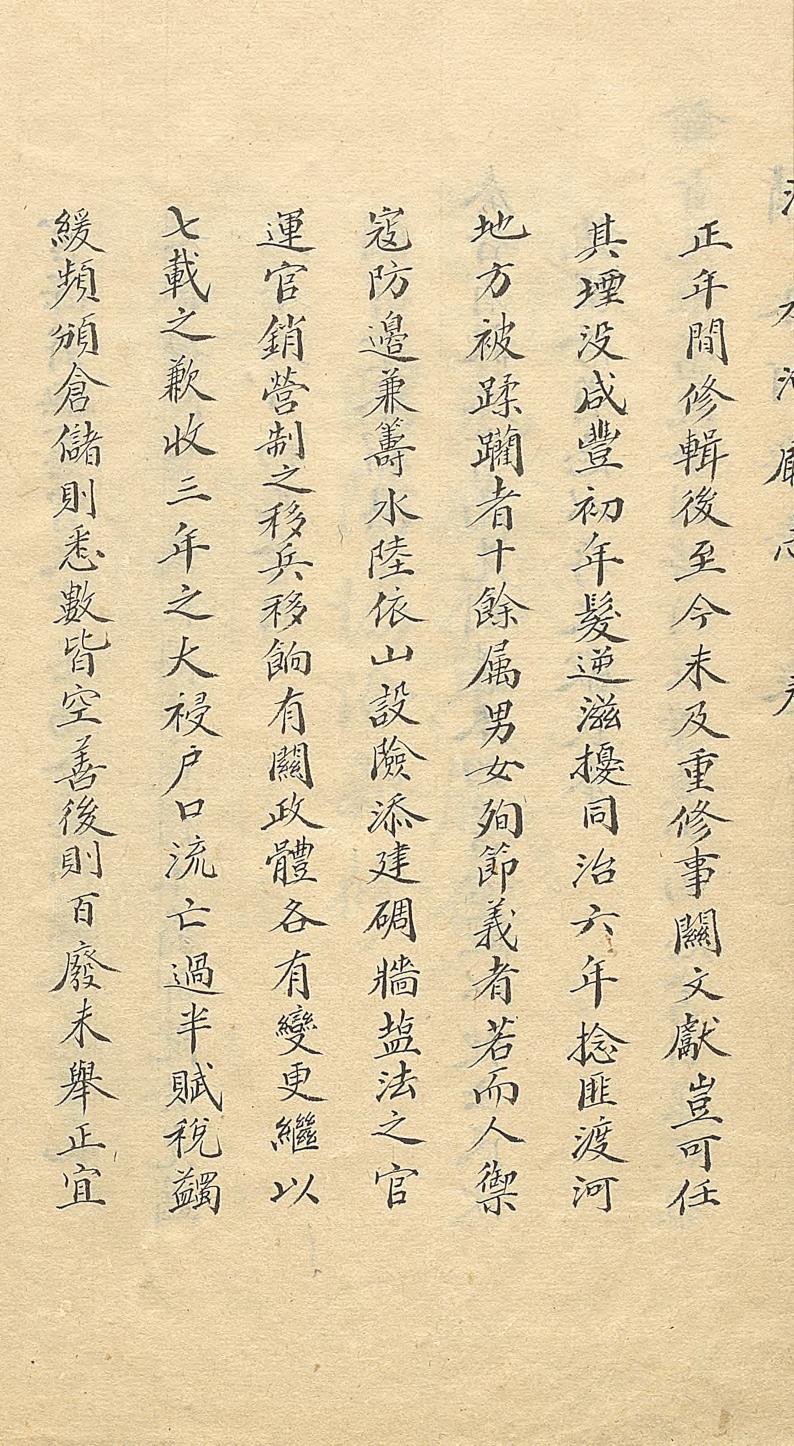 正年間修輯後至今未及重修事關文獻豈可任
其堙没咸豐初年髮逆滋擾同治六年捻匪渡河
地方被蹂躪者十餘属男女殉節義者若而人禦
寇防邊兼籌水陸依山設險添建碉牆盐法之官
運官銷營制之移兵移餉有關政體各有變更繼以
七載之歉收三年之大祲户口流亡過半賦稅蠲
緩頻頒倉儲則悉數皆空善後則百廢未舉正宜